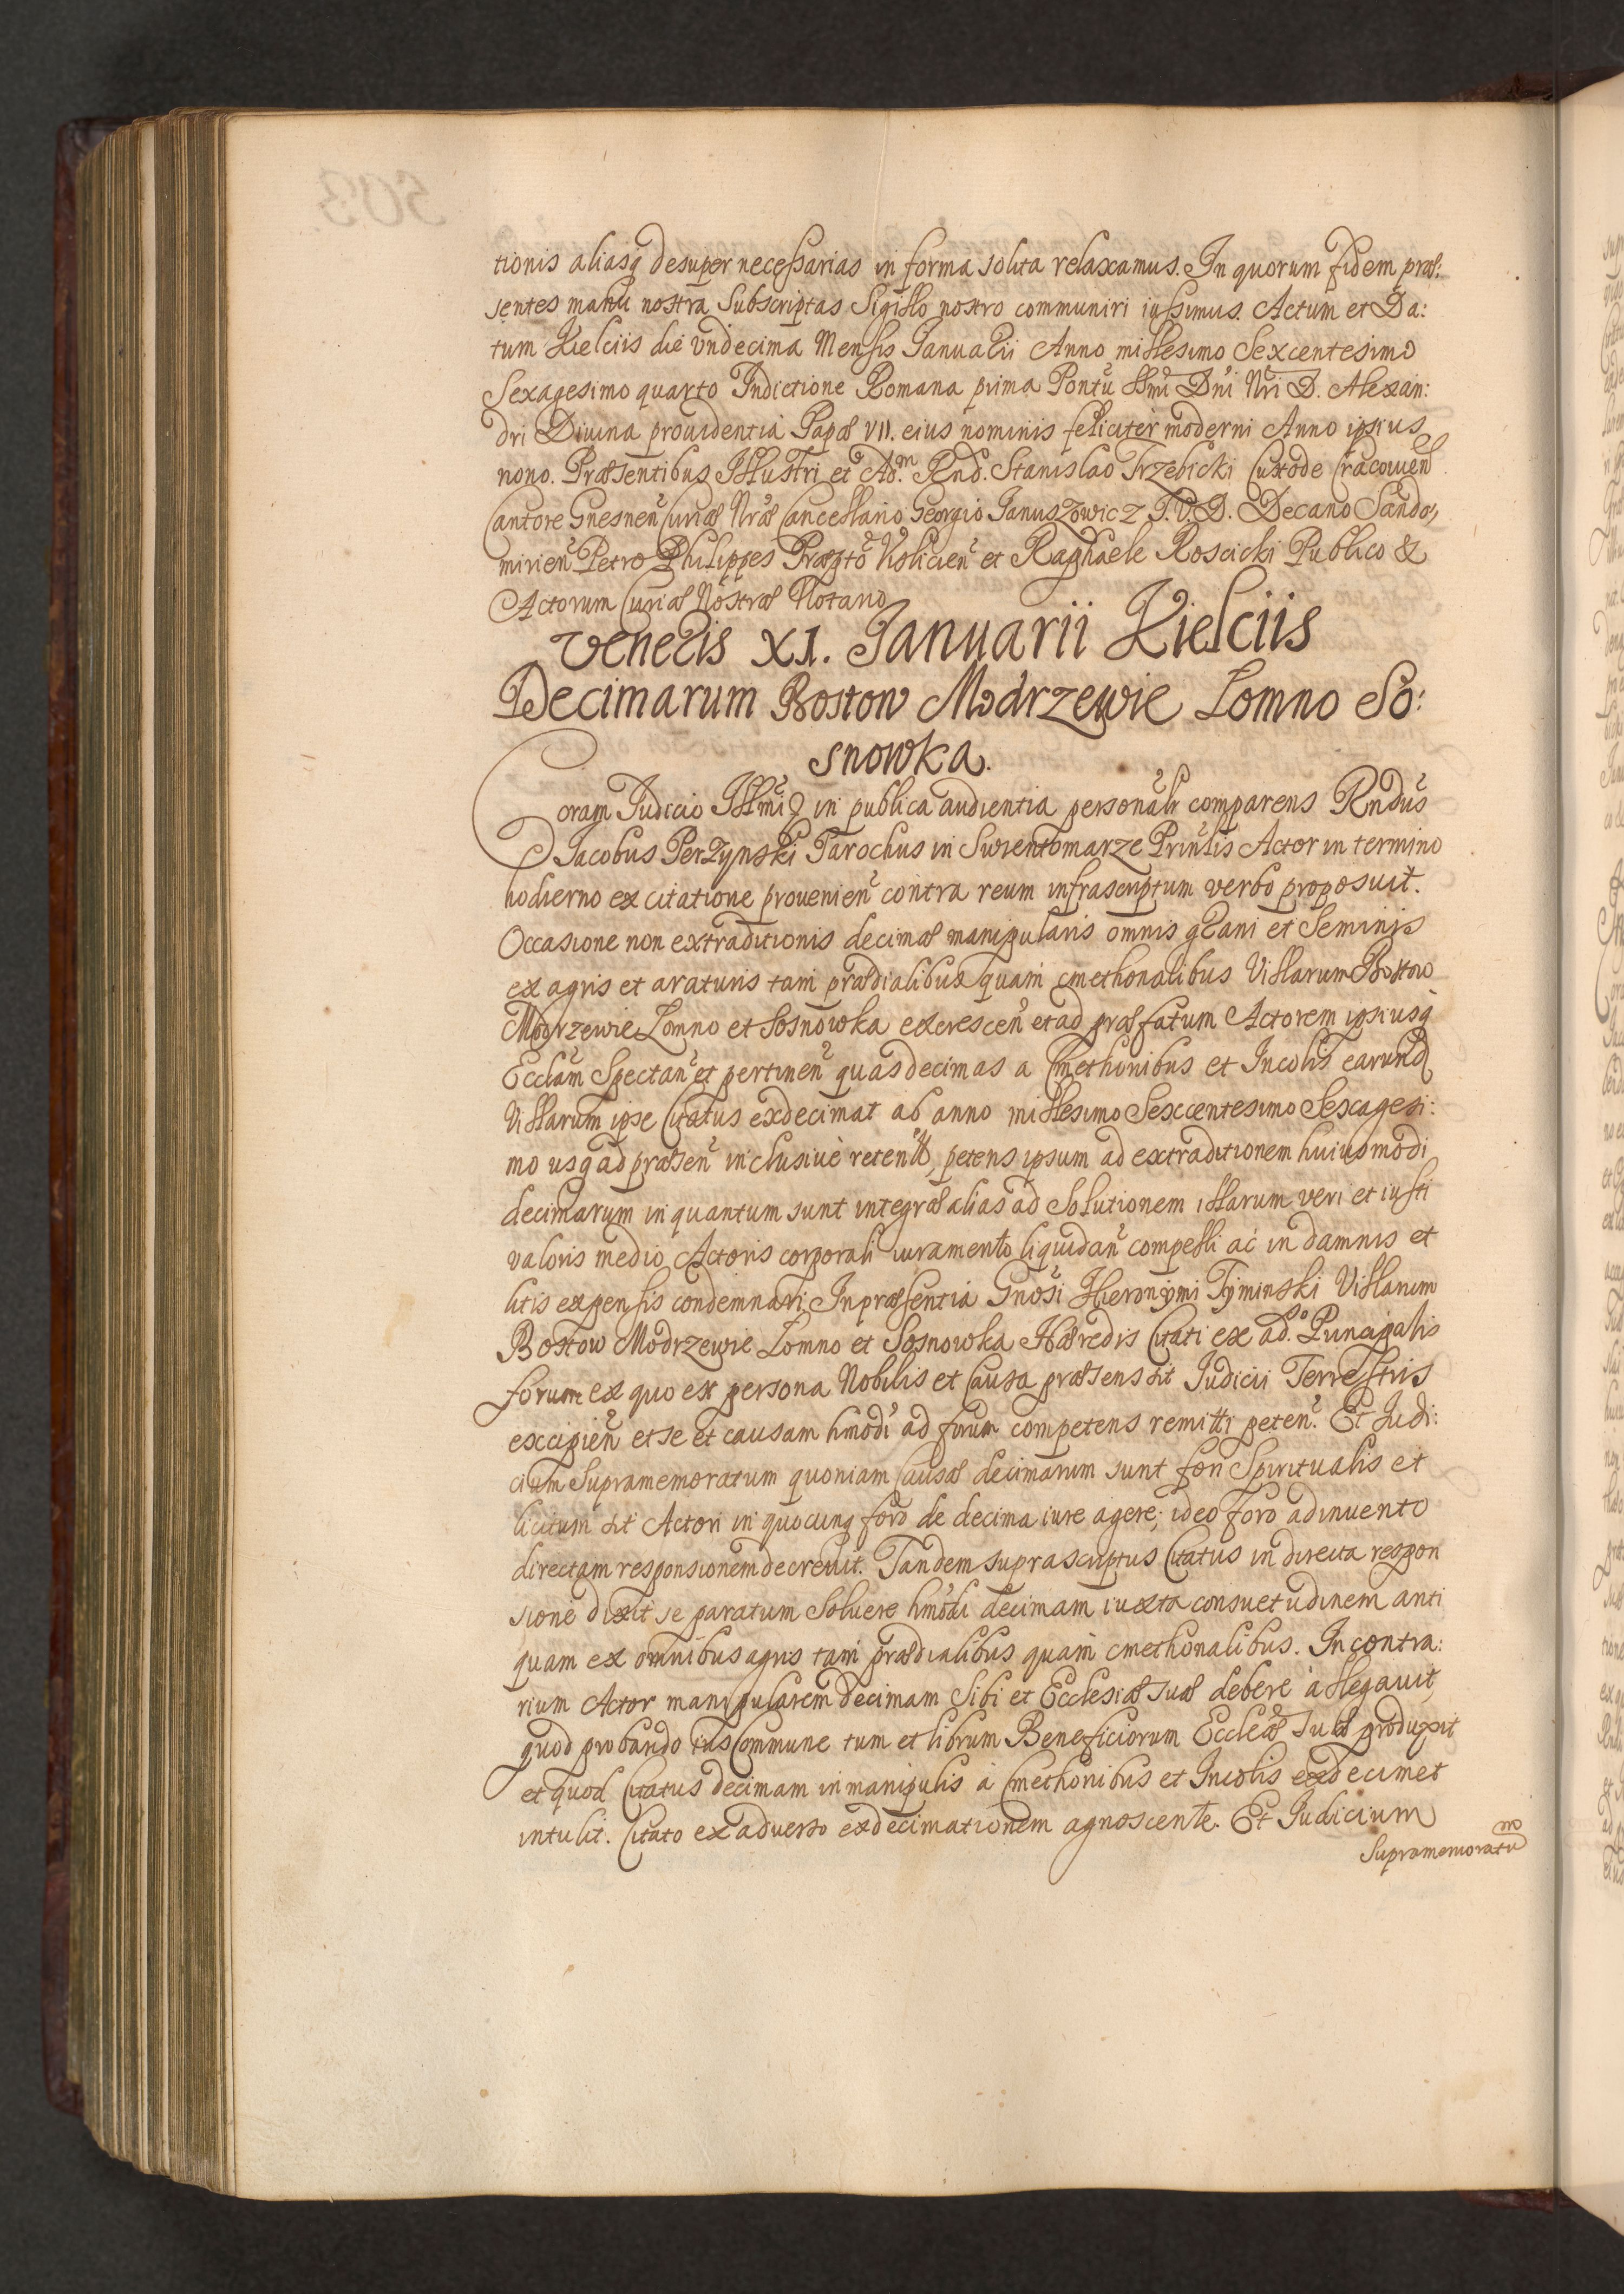 tionis aliasq desuper necessarias in forma solita relaxamus. In quorum fidem præ:
sentes manu nostra Subscriptas Sigillo nostro communiri iussimus. Actum et Da:
tum Kielciis die vndecima Mensis Januarii Anno millesimo Sexcentesimo
Sexagesimo quarto Indictione Romana prima Pontũ Ssmi Dni Nri D. Alexan:
dri Diuina prouidentia Papæ VII. eius nominis feliciter moderni Anno ipsius
nono. Præsentibus Illustri et Ad.m Rnd. Stanislao Trzebicki Custode Cracouien
Cantore Gnesnen Curiæ Nræ Cancellario Georgio Januszowicz J.V.D. Decano Sando,
mirien Petro Philippes Præpto Kosicien et Raphaele Roscicki Publico &
Actorum Curiæ Nostræ Notario
Veneris XI. Januarii Kielciis
Decimarum Bostow Modrzewie Lomno So:
snowka.
Coram Judicio Illmi D in publica audientia personalr comparens Rndus
D Jacobus Perzynski Parochus in Swientomarze Prinlis Actor in termino
hodierno ex citatione prouenien contra reum infrascriptum verbo proposuit.
Occasione non extraditionis decimæ manipularis omnis grani et Seminis
ex agris et araturis tam prædialibus quam cmethonalibus Villarum Bostow
Modrzewie Lomno et Sosnowka excrescen et ad præfatum Actorem ipsiusq
Ecclam Spectan et pertinen quas decimas a Cmethonibus et Incolis earund
Villarum ipse Citatus exdecimat ab anno millesimo Sexcentesimo Sexagesi:
mo usq ad præsen inclusiuè retent, petens ipsum ad extraditionem huiusmodi
decimarum in quantum sunt integræ alias ad Solutionem illarum veri et iusti
valoris medio Actoris corporali iuramento liquidan compelli ac in damnis et
litis expensis condemnari: In præsentia Gnosi Hieronymi Tyminski Villarum
Bostow Modrzewie Lomno et Sosnowka Hæredis Citati ex ad.so Principalis
forum ex quo est persona Nobilis et Causa præsens sit Judicii Terrestris
excipien et se et causam hmodi ad forum competens remitti peten. Et Judi:
cium Supramemoratum quoniam Causæ decimarum sunt fori Spiritualis et
licitum sit Actori in quocunq foro de decima iure agere; ideo foro adinuento
directam responsionem decreuit. Tandem suprascriptus Citatus in directa respon
sione dixit se paratum Soluere hmodi decimam iuxta consuetudinem anti
quam ex omnibus agris tam prædialibus quam cmethonalibus. In contra:
rium Actor manipularem decimam Sibi et Ecclesiæ suæ debere allegauit,
quod probando ius Commune tum et librum Beneficiorum Eccleæ suæ produxit
et quod Citatus decimam in manipulis à Cmethonibus et Incolis exdecimet
intulit. Citato ex aduerso exdecimationem agnoscente. Et Judicium
Supramemoratu m